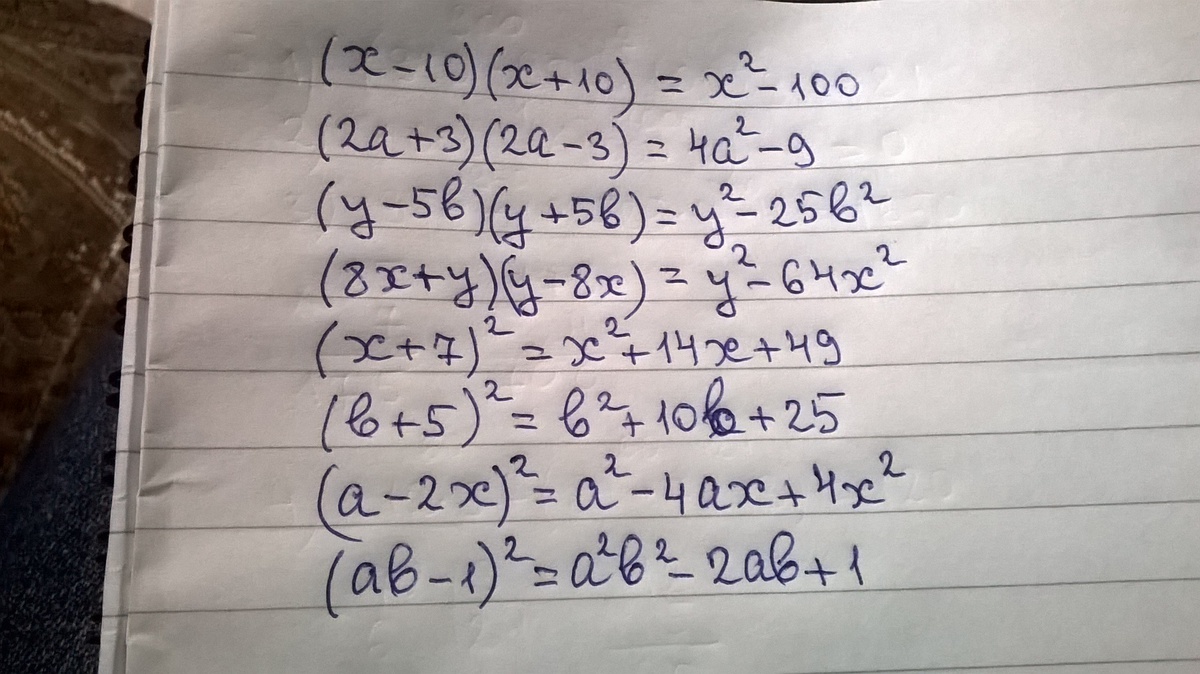 (x-10)(x+10) = x²-100
(2a+3)(2a-3) = 4a²-9
(y-5b)(y+5b) = y²-25b²
(8x+y)(y-8x) = y²-64x²
(x+7)² = x²+14x+49
(b+5)² = b²+10b+25
(a-2x)² = a²-4ax+4x²
(ab-1)² = a²b²-2ab+1